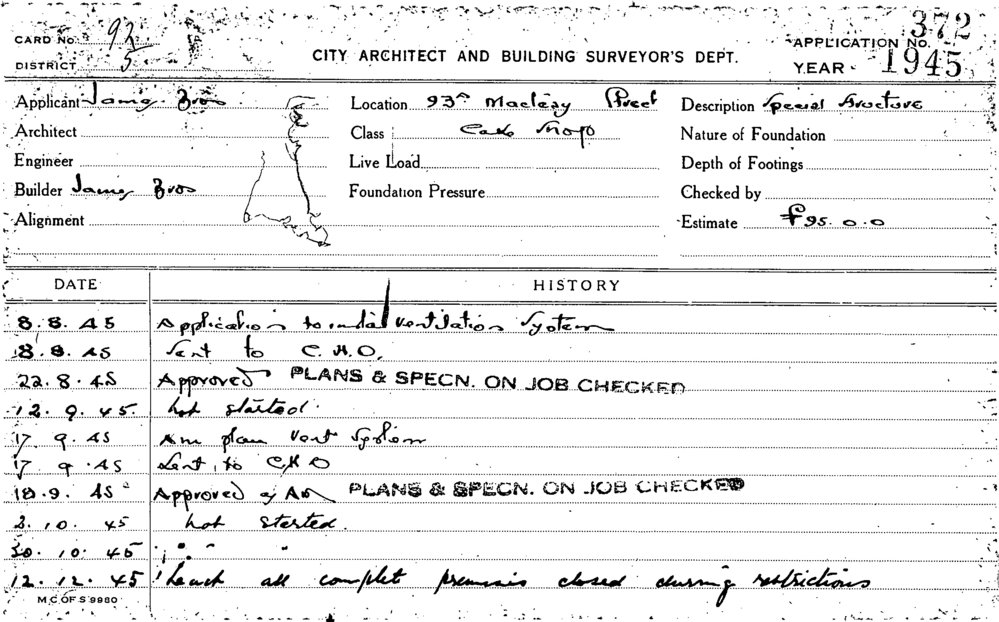 CARD No. 92
DISTRICT 5
CITY ARCHITECT AND BUILDING SURVEYOR'S DEPT.
APPLICATION No. 372
YEAR 1945
Applicant James Bros Location 93A Macleay Street Description Special Structure
Architect Class Cake Shop Nature of Foundation
Engineer Live Load Depth of Footings
Builder James Bros Foundation Pressure Checked by
Alignment Estimate £95.0.0
DATE HISTORY
8.8.45 Application to instal ventilation System
8.8.45 Sent to C.H.O.
22.8.45 Approved PLANS & SPECN. ON JOB CHECKED
12.9.45. not started.
17 9.45 Am plan Vent System
17 9.45 Sent to CHO
18.9.45 Approved of Am PLANS & SPECN. ON JOB CHECKED
2.10.45 not started.
30.10.45 " "
12.12.45 all complet premises closed during restrictions
M.C.OF S 9980